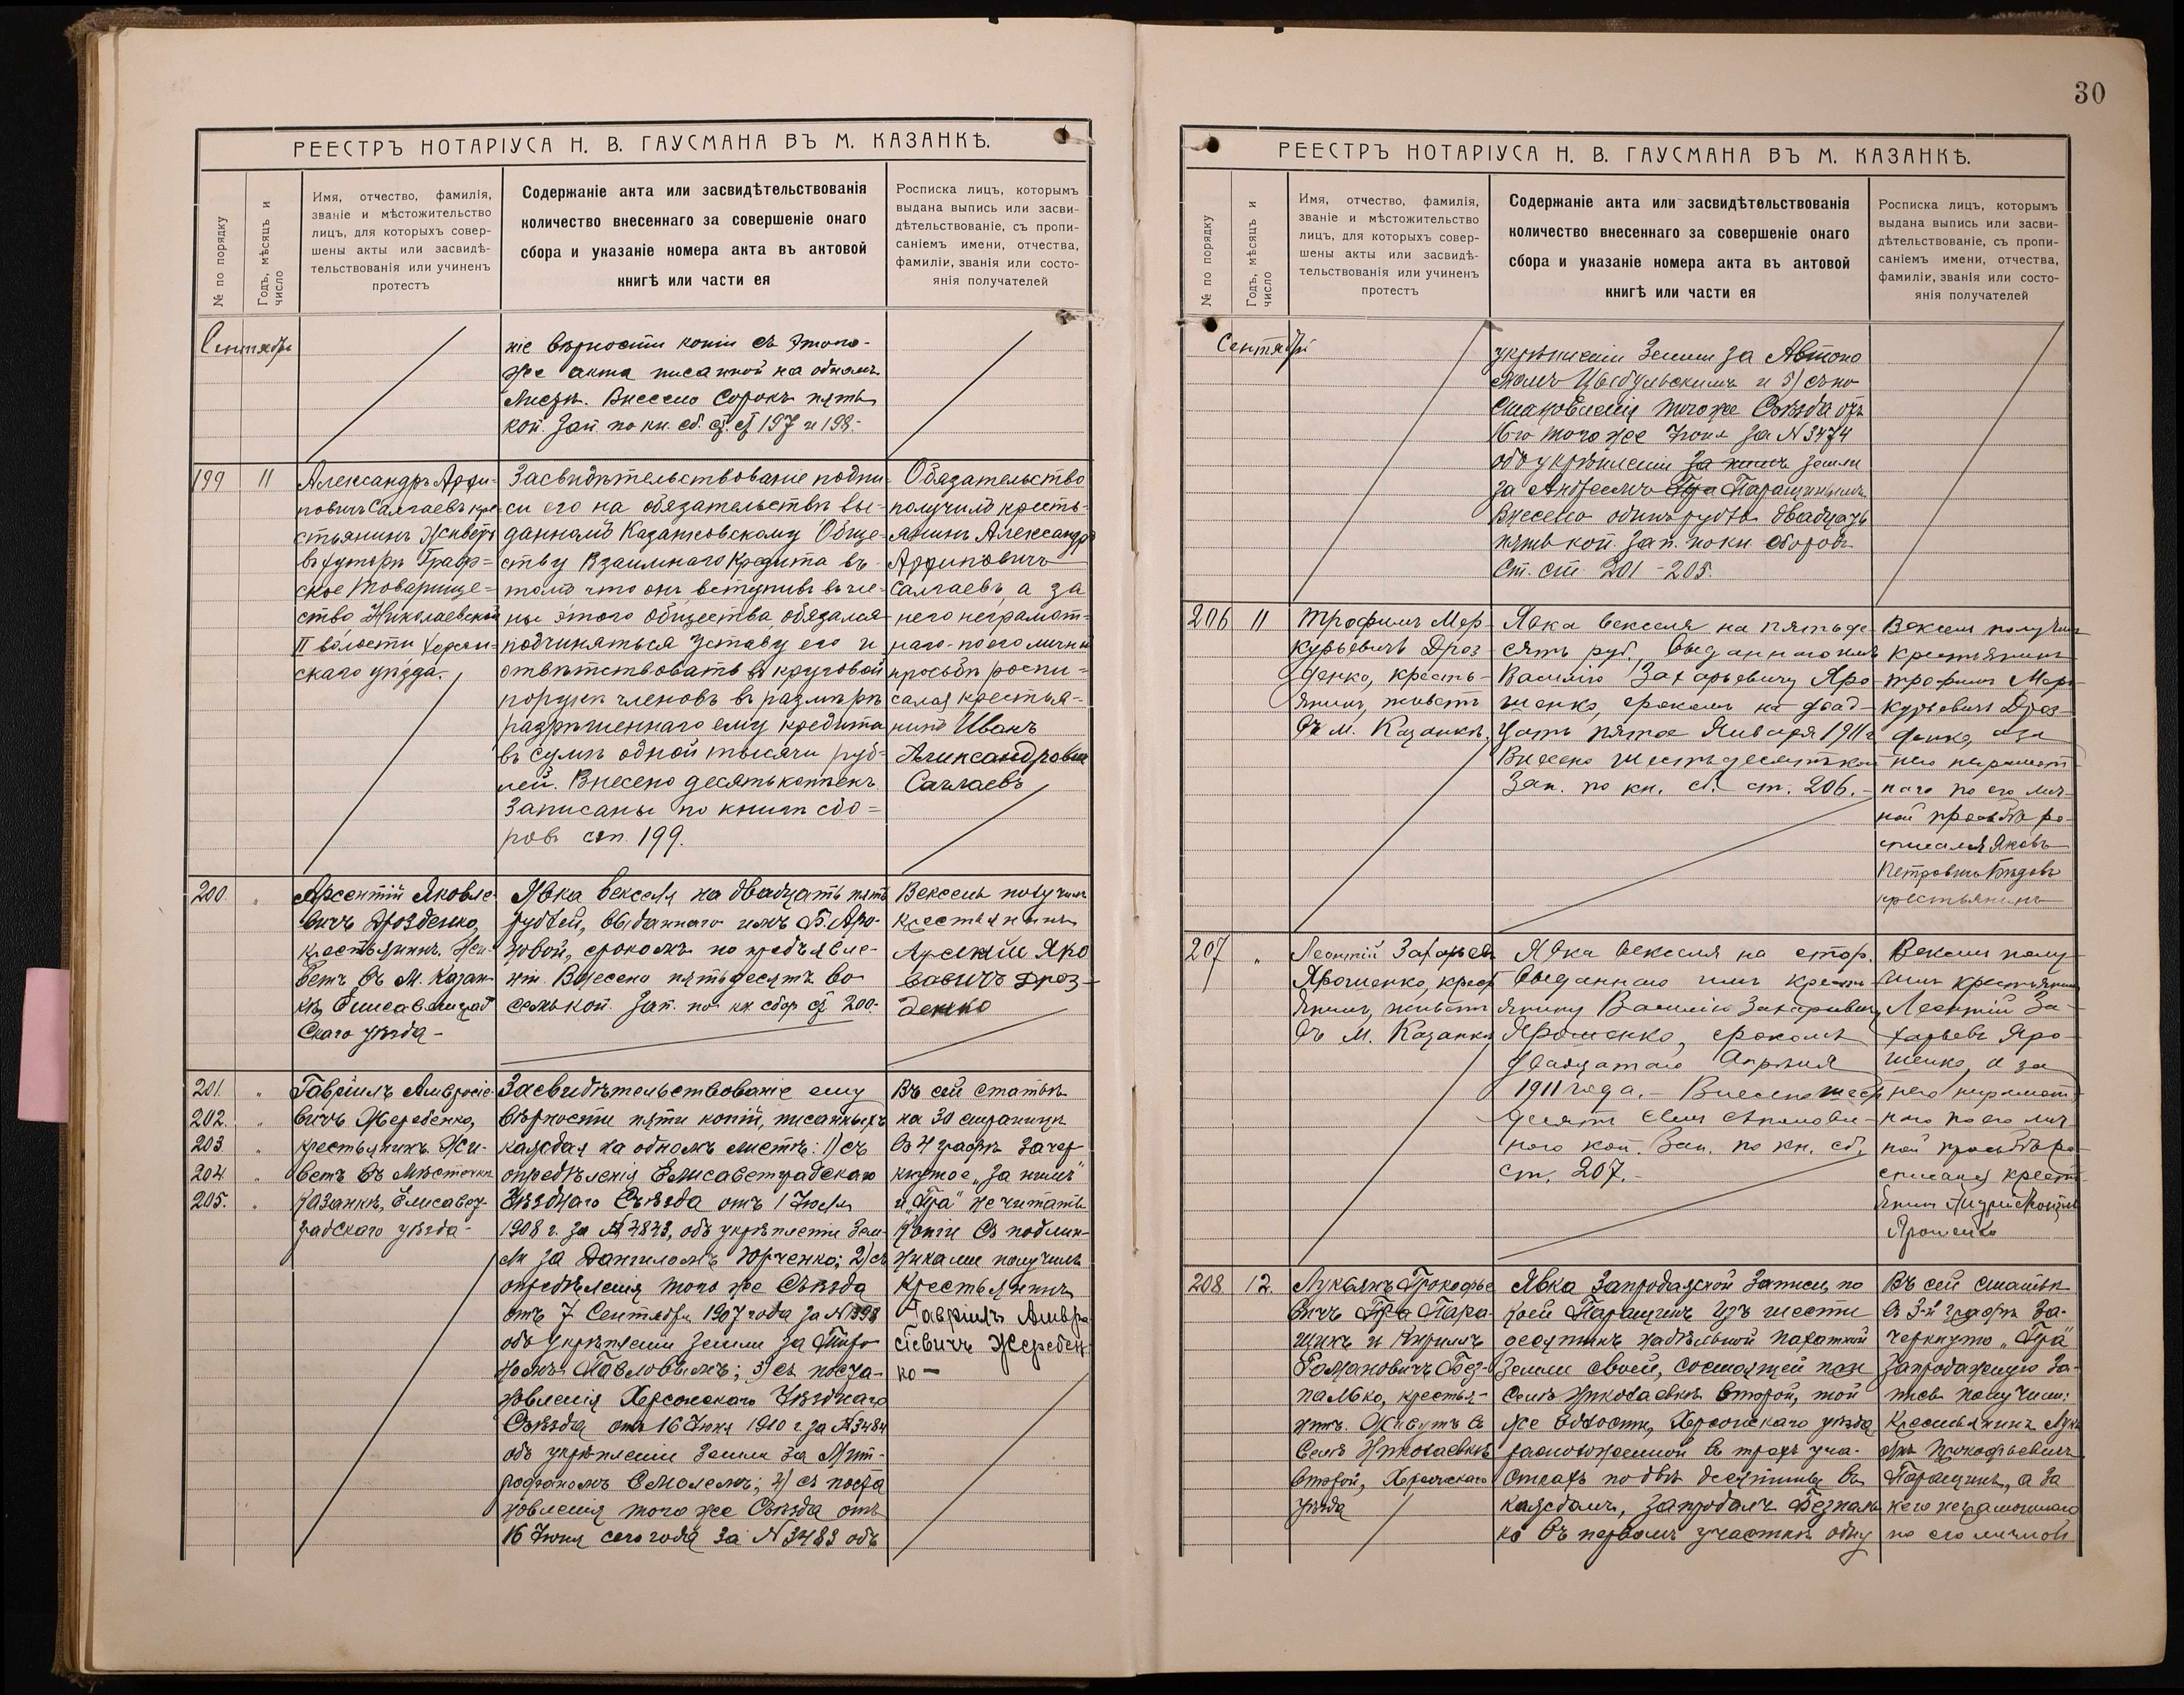 РЕЕСТРЪ НОТАРІУСА Н. В. ГАУСМАНА ВЪ М. КАЗАНКѢ.
№ по порядку
Годъ, мѣсяцъ и
число
Имя, отчество, фамилія,
званіе и мѣстожительство
лицъ, для которыхъ совер-
шены акты или засвидѣ-
тельствованія или учиненъ
протестъ
Содержаніе акта или засвидѣтельствованія
количество внесеннаго за совершеніе онаго
сбора и указаніе номера акта въ актовой
книгѣ или части ея
Росписка лицъ, которымъ
выдана выпись или засви-
дѣтельствованіе, съ пропи-
саніемъ имени, отчества,
фамиліи, званія или состо-
янія получателей
Сентября
ніе вѣрности копіи съ этого-
же акта писанной на одномъ
листѣ. Внесено сорокъ пять
коп. Зап. по кн. сб. ст. ст. 197 и 198.-
199 11
Александръ Архи-
повичъ Салгаевъ кре-
стьянинъ живетъ
въ хуторѣ Граф=
ское Товарище=
ство Николаевской
II волости Херсон-
скаго уѣзда.
Засвидѣтельствованіе подпи-
си его на обязательствѣ вы-
данномъ Казанковскому Обще-
ству Взаимнаго Кредита въ
томъ что онъ, вступивъ въ чле-
ны этого Общества, обязался
подчиняться Уставу его и
отвѣтствовать въ круговой
порукѣ членовъ въ размѣрѣ
разрѣшеннаго ему кредита
въ суммѣ одной тысячи руб-
лей. Внесено десять копѣекъ
Записаны по книгѣ сбо=
ровъ ст. 199.
Обязательство
получилъ кресть-
янинъ Александръ
Архиповичъ
Салгаевъ, а за
него неграмот-
наго-по его личной
просьбѣ роспи-
сался крестья-
нинъ Иванъ
Александровичъ
Салгаевъ
200. "
Арсентій Яковле-
вичъ Дрозденко,
крестьянинъ. Жи-
ветъ въ м. Казан-
кѣ Елисаветград
скаго уѣзда -
Явка векселя на двадцать пять
рублей, выданнаго имъ Б. Аро-
новой, срокомъ по предъявле-
нію. Внесено пятьдесятъ во
семь коп. Зап. по кн. сбор. ст. 200.
Вексель получилъ
крестьянинъ
Арсентій Яко
влевичъ Дроз-
денко
201. "
202. "
203. "
204. "
205. "
Гавріилъ Амвросіе-
вичъ Жеребенко,
крестьянинъ. Жи-
ветъ въ мѣстечкѣ
Казанкѣ, Елисавет-
градскаго уѣзда -
Засвидѣтельствованіе ему
вѣрности пяти копій, писанныхъ
каждая на одномъ листѣ: 1) съ
опредѣленія Елисаветградскаго
Уѣзднаго Съѣзда отъ 1 Іюля
1908 г. за № 2823, объ укрѣпленіи зем-
ли за Даниломъ Юрченко; 2) съ
опредѣленія того же Съѣзда
отъ 7 Сентября 1907 года за № 1398
объ укрѣпленіи земли за
Павловымъ; 3) съ поста-
новленія Херсонскаго Уѣзднаго
Съѣзда отъ 16 Іюня 1910 г. за № 3484
объ укрѣпленіи земли за Мит-
рофаномъ ; 4) съ поста
новленія того же Съѣзда отъ
16 Іюня сего года за № 3483 объ
Въ сей статьѣ
на 30 страницѣ
въ 4 графѣ зачер
кнутое „за нимъ"
и „Пра" не читать
Копіи съ подлин-
никами получилъ
Крестьянинъ
Гавріилъ Амвро
сіевичъ Жеребен
ко -
30
РЕЕСТРЪ НОТАРІУСА Н. В. ГАУСМАНА ВЪ М. КАЗАНКѢ.
№ по порядку
Годъ, мѣсяцъ и
число
Имя, отчество, фамилія,
званіе и мѣстожительство
лицъ, для которыхъ совер-
шены акты или засвидѣ-
тельствованія или учиненъ
протестъ
Содержаніе акта или засвидѣтельствованія
количество внесеннаго за совершеніе онаго
сбора и указаніе номера акта въ актовой
книгѣ или части ея
Росписка лицъ, которымъ
выдана выпись или засви-
дѣтельствованіе, съ пропи-
саніемъ имени, отчества,
фамиліи, званія или состо-
янія получателей
Сентября
укрѣпленіи земли за Автоно
момъ Цыбульскимъ и 5) съ по
становленія того же Съѣзда отъ
16го того же Іюня за № 3474
объ укрѣпленіи за нимъ земли
за Андреемъ Пра Паращинымъ
Внесено одинъ рубль двадцать
пять коп. Зап. по кн. сборовъ
Ст. ст. 201-205.
206 11
Трофимъ Мер-
курьевичъ Дроз
денко, кресть-
янинъ, живетъ
въ м. Казанкѣ.
Явка векселя на пятьде-
сятъ руб., выданнаго имъ
Василію Захарьевичу Яро
шенко, срокомъ на двад-
цать пятое Января 1911 г.
Внесено шестьдесятъ коп
Зап. по кн. сб. ст. 206.-
Вексель получилъ
крестьянинъ
Трофимъ Мер-
курьевичъ Дроз
денко, а за
него неграмот
наго по его лич-
ной просьбѣ ро-
списался Яковъ
Петровичъ Бѣдовъ
крестьянинъ
207 "
Леонтій Захарьев
Ярошенко, крест
янинъ, живетъ
въ м. Казанкѣ
Явка векселя на сто р.
выданнаго имъ кресть-
янину Василію Захарьевичу
Ярошенко, срокомъ
двадцатаго Апрѣля
1911 года. - Внесено шесть
десятъ семь съ полови-
ною коп. Зап. по кн. сб.
ст. 207.-
Вексель полу-
чилъ крестьянинъ
Леонтій За-
харьевъ Яро-
шенко, а за
него неграмот-
наго по его лич-
ной просьбѣ ро-
списался кресть
янинъ
Ярошенко
208 12.
Лукьянъ Прокофье
вичъ Пра Пара-
щинъ и Кириллъ
Романовичъ Без-
палько, крестья-
не. Живутъ въ
Селѣ Николаевкѣ
Второй, Херсонскаго
уѣзда
Явка запродажной записи, по
коей Паращинъ изъ шести
десятинъ надѣльной пахатной
земли своей, состоящей при
Селѣ Николаевкѣ Второй, той
же волости, Херсонскаго уѣзда,
расположенной въ трехъ уча-
сткахъ по двѣ десятины въ
каждомъ, запродалъ Безпаль
ко въ первомъ участкѣ одну
Въ сей статьѣ
въ 3-й графѣ за-
черкнуто „Пра"
Запродажную за-
пись получили:
Крестьянинъ Лукь
янъ Прокофьевичъ
Паращинъ, а за
него неграмотнаго
по его личной